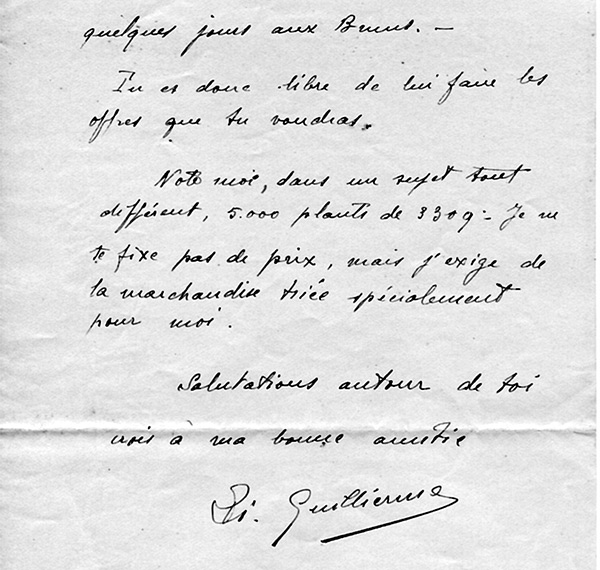 quelques jours aux Bruns. —
Tu es donc libre de lui faire les
offres que tu voudras.
Note moi, dans un sujet tout
différent, 5.000 plants de 3309 - Je ne
te fixe pas de prix, mais j'exige de
la marchandise triée spécialement
pour moi.
Salutations autour de toi
crois à ma bonne amitié
Guillierme